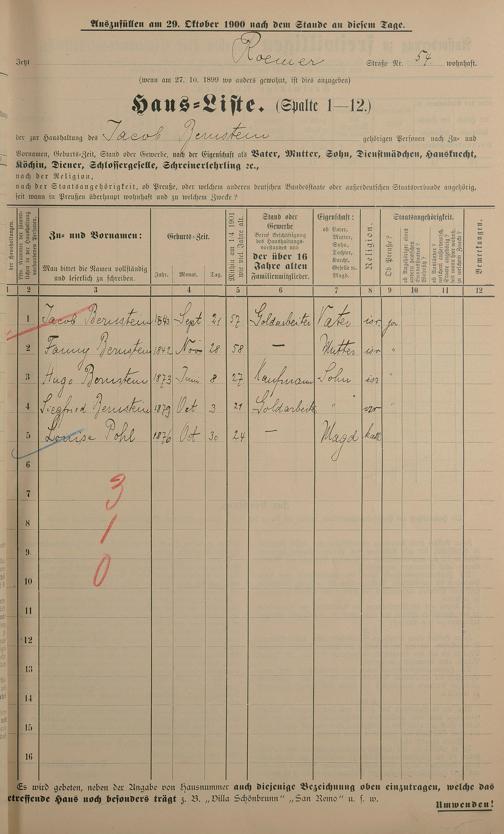 Auszufüllen am 29. Oktober 1900 nach dem Stande an diesem Tage.
Jetzt Roemer Straße Nr. 54 wohnhaft.
(wenn am 27. 10. 1899 wo anders gewohnt, ist dies anzugeben)
Haus-Liste. (Spalte 1—12.)
der zur Haushaltung des Jacob Bernstein gehörigen Personen nach Zu- und
Vornamen, Geburts-Zeit, Stand oder Gewerbe, nach der Eigenschaft als Vater, Mutter, Sohn, Dienstmädchen, Hausknecht,
Köchin, Diener, Schlossergeselle, Schreinerlehrling ꝛc.,
nach der Religion,
nach der Staatsangehörigkeit, ob Preuße, oder welchem anderen deutschen Bundesstaate oder außerdeutschen Staatsverbande angehörig,
seit wann in Preußen überhaupt wohnhaft und zu welchem Zwecke?
Zu- und Vornamen:
Man bittet die Namen vollständig
und leserlich zu schreiben.
Geburts-Zeit.
Jahr. Monat. Tag.
Mithin am 1/4 1901
wie viel Jahre alt.
Stand oder
Gewerbe
der über 16
Jahre alten
Familienmitglieder.
Eigenschaft:
ob Vater,
Mutter,
Sohn,
Tochter,
Knecht,
Geselle ꝛc.
Magd.
Religion.
Staatsangehörigkeit.
Ob Preuße?
Bemerkungen.
1 2 3 4 5 6 7 8 9 10 11 12
1 Jacob Bernstein 1843 Sept 21 57 Goldarbeiter Vater isr ja
2 Fanny Bernstein 1842 Nov 28 58 — Mutter isr "
3 Hugo Bernstein 1873 Juni 8 27 Kaufmann Sohn isr "
4 Siegfried Bernstein 1879 Oct 3 21 Goldarbeiter " isr "
5 Louise Pohl 1876 Oct 30 24 — Magd kath "
6
7
3
8
1
9
10
0
11
12
13
14
15
16
Es wird gebeten, neben der Angabe von Hausnummer auch diejenige Bezeichnung oben einzutragen, welche das
betreffende Haus noch besonders trägt z. B. „Villa Schönbrunn" „San Remo" u. s. w.
Umwenden!